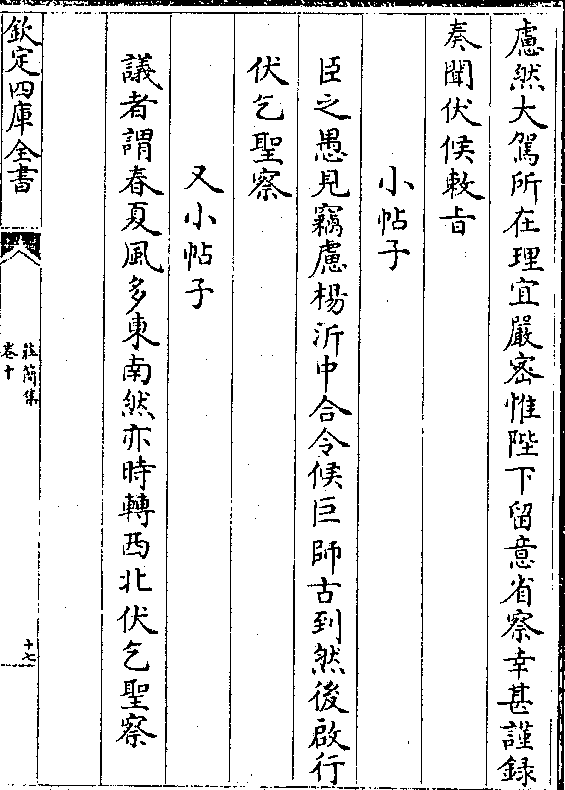 慮然大駕所在理宜嚴密惟陛下留意省察幸甚謹録
奏聞伏候敕㫖
小帖子
臣之愚見竊慮楊沂中合令候巨師古到然後啟行
伏乞聖察
又小帖子
議者謂春夏風多東南然亦時轉西北伏乞聖察
欽定四庫全書
莊簡集
卷十
十七